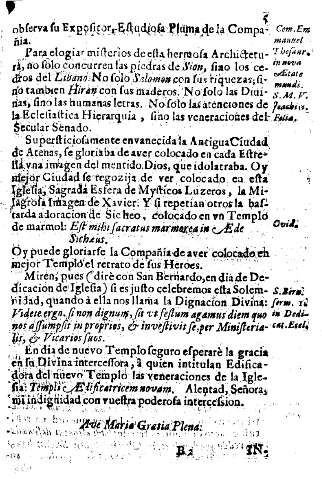 5
observa su Expositor, Estudiosa Pluma de la Compa-
ñia.
Para elogiar misterios de esta hermosa Architectu-
rá, no solo concurren las piedras de Sion, sino los ce-
dros del Libano. No solo Salomon con sus riquezas; si-
no tambien Hiran con sus maderos. No solo las Divi-
nas, sino las humanas letras. No solo las atenciones de
la Eclesiastica Hierarquia, sino las veneraciones del
Secular Senado.
Supersticiosamente envanecida la Antigua Ciudad
de Atenas, se gloriaba de aver colocado en cada Estre-
lla una imagen del mentido Dios, que idolatraba. Oy
mejor Ciudad se regozija de ver colocado en esta
Iglesia, Sagrada Esfera de Mysticos Luzeros, la Mi-
lagrosa Imagen de Xavier. Y si repetian otros la bas-
tarda adoracion de Sicheo, colocado en vn Templo
de marmol: Est mihi sacratus marmorea in Æde
Sichæus.
Oy puede gloriarse la Compañia de aver colocado en
mejor Templo el retrato de sus Heroes.
Miren, pues (dirè con San Bernardo, en dia de De-
dicacion de Iglesia) si es justo celebremos esta Solem-
nidad, quando à ella nos llama la Dignacion Divina:
Videte ergo, si non dignum, sit ut festum agamus diem quo
nos assumpsit in proprios, & investivit se, per Ministeria-
lis, & Vicarios suos.
En dia de nuevo Templo seguro esperarè la gracia
en su Divina intercessora, à quien intitulan Edifica-
dora del nuevo Templo las veneraciones de la Igle-
sia: Templi Ædificatricem novam. Alentad, Señora,
mi indignidad con vuestra poderosa intercession.
Ave Maria Gratia Plena.
B 2 IN.
Cem. Em
manuel
Thesaur.
in nova
Ætate
mundi.
S. M. V.
Ovid.
S. Bern.
serm. in
Dedi-
cat. Eccl.